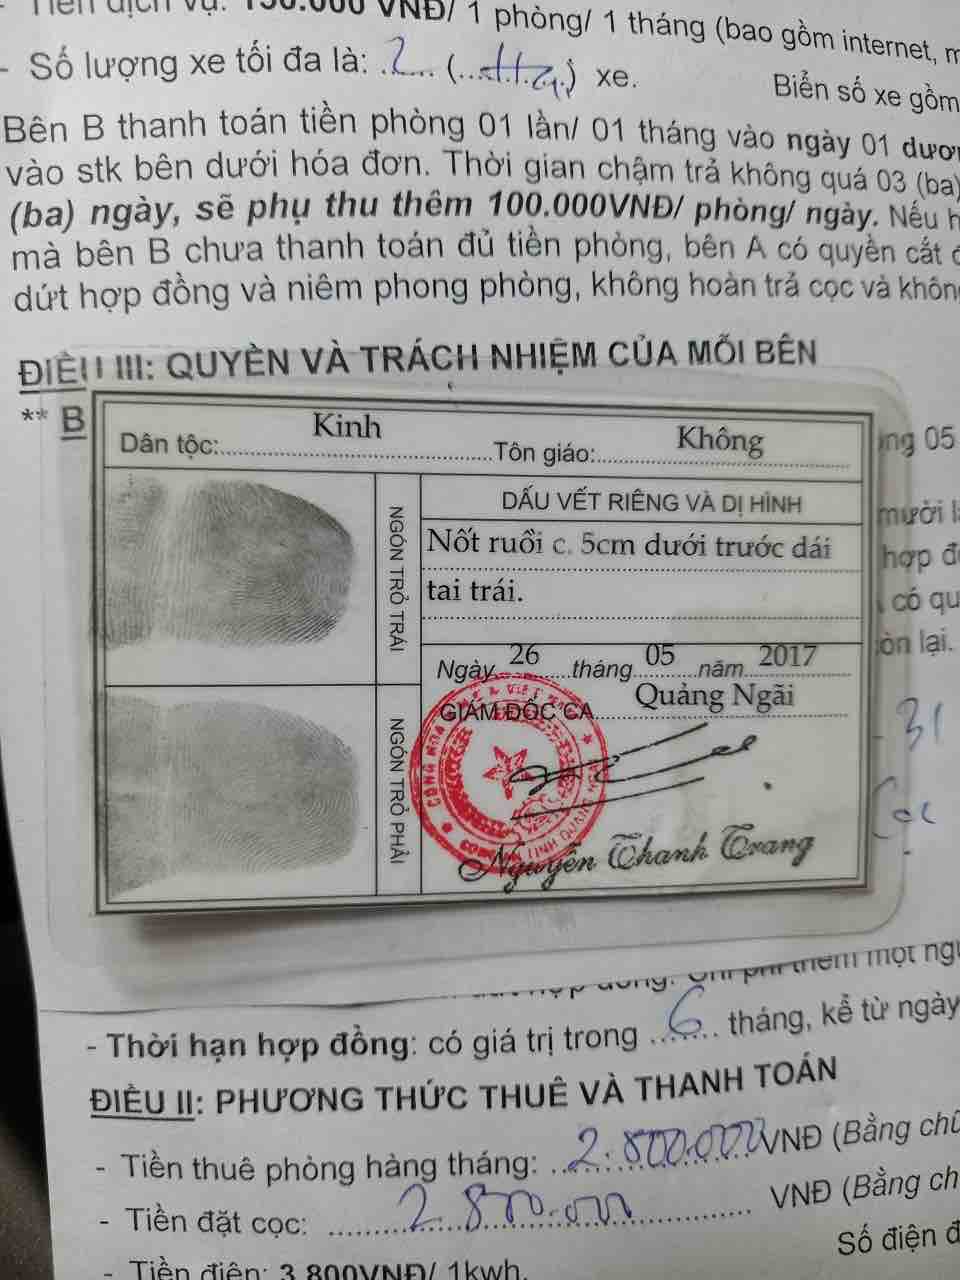 Tiền dịch vụ: 150.000 VNĐ/ 1 phòng/ 1 tháng (bao gồm internet,
- Số lượng xe tối đa là: 2 (Hai) xe. Biển số xe gồm
Bên B thanh toán tiền phòng 01 lần/ 01 tháng vào ngày 01
vào stk bên dưới hóa đơn. Thời gian chậm trả không quá 03 (ba)
(ba) ngày, sẽ phụ thu thêm 100.000VNĐ/ phòng/ ngày. Nếu
mà bên B chưa thanh toán đủ tiền phòng, bên A có quyền cắt
dứt hợp đồng và niêm phong phòng, không hoàn trả cọc và
ĐIỀU III: QUYỀN VÀ TRÁCH NHIỆM CỦA MỖI BÊN
** B
05
mười
hợp
có
còn lại.
31
Cọc
Dân tộc: Kinh Tôn giáo: Không
NGÓN TRỎ TRÁI
DẤU VẾT RIÊNG VÀ DỊ HÌNH
Nốt ruồi c. 5cm dưới trước dái
tai trái.
Ngày 26 tháng 05 năm 2017
GIÁM ĐỐC CA Quảng Ngãi
NGÓN TRỎ PHẢI
Nguyễn Thanh Trang
thêm một
- Thời hạn hợp đồng: có giá trị trong 6 tháng, kể từ ngày
ĐIỀU II: PHƯƠNG THỨC THUÊ VÀ THANH TOÁN
- Tiền thuê phòng hàng tháng: 2.800.000 VNĐ (Bằng
- Tiền đặt cọc: 2.800.000 VNĐ (Bằng
Số điện
- Tiền điện: 3.800VNĐ/ 1kwh.